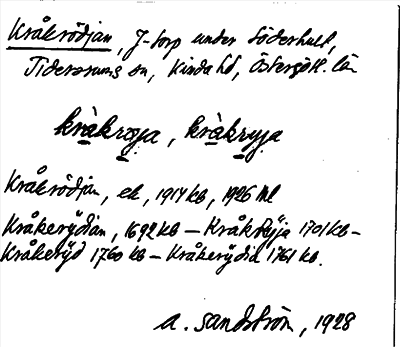 Kråkrödjan, J-torp under Söderhult,
Tidersrums sn, Kinda hd, Östergötl. län
kråkroja, kråkryja
Kråkrödjan, ek, 1914 kb, 1926 ml
Kråkerydian, 1692 kb – Kråkryja 1701 kb –
Kråkeryd 1760 kb – Kråkerydia 1761 kb.
A. Sandström, 1928